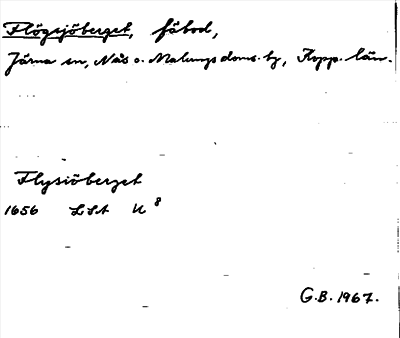 Flögsjöberget, fäbod,
Järna sn, Nås o. Malungs doms. tg, Kopp. län.
Flysiöberget
1656 LSA U 8
G.B. 1967.